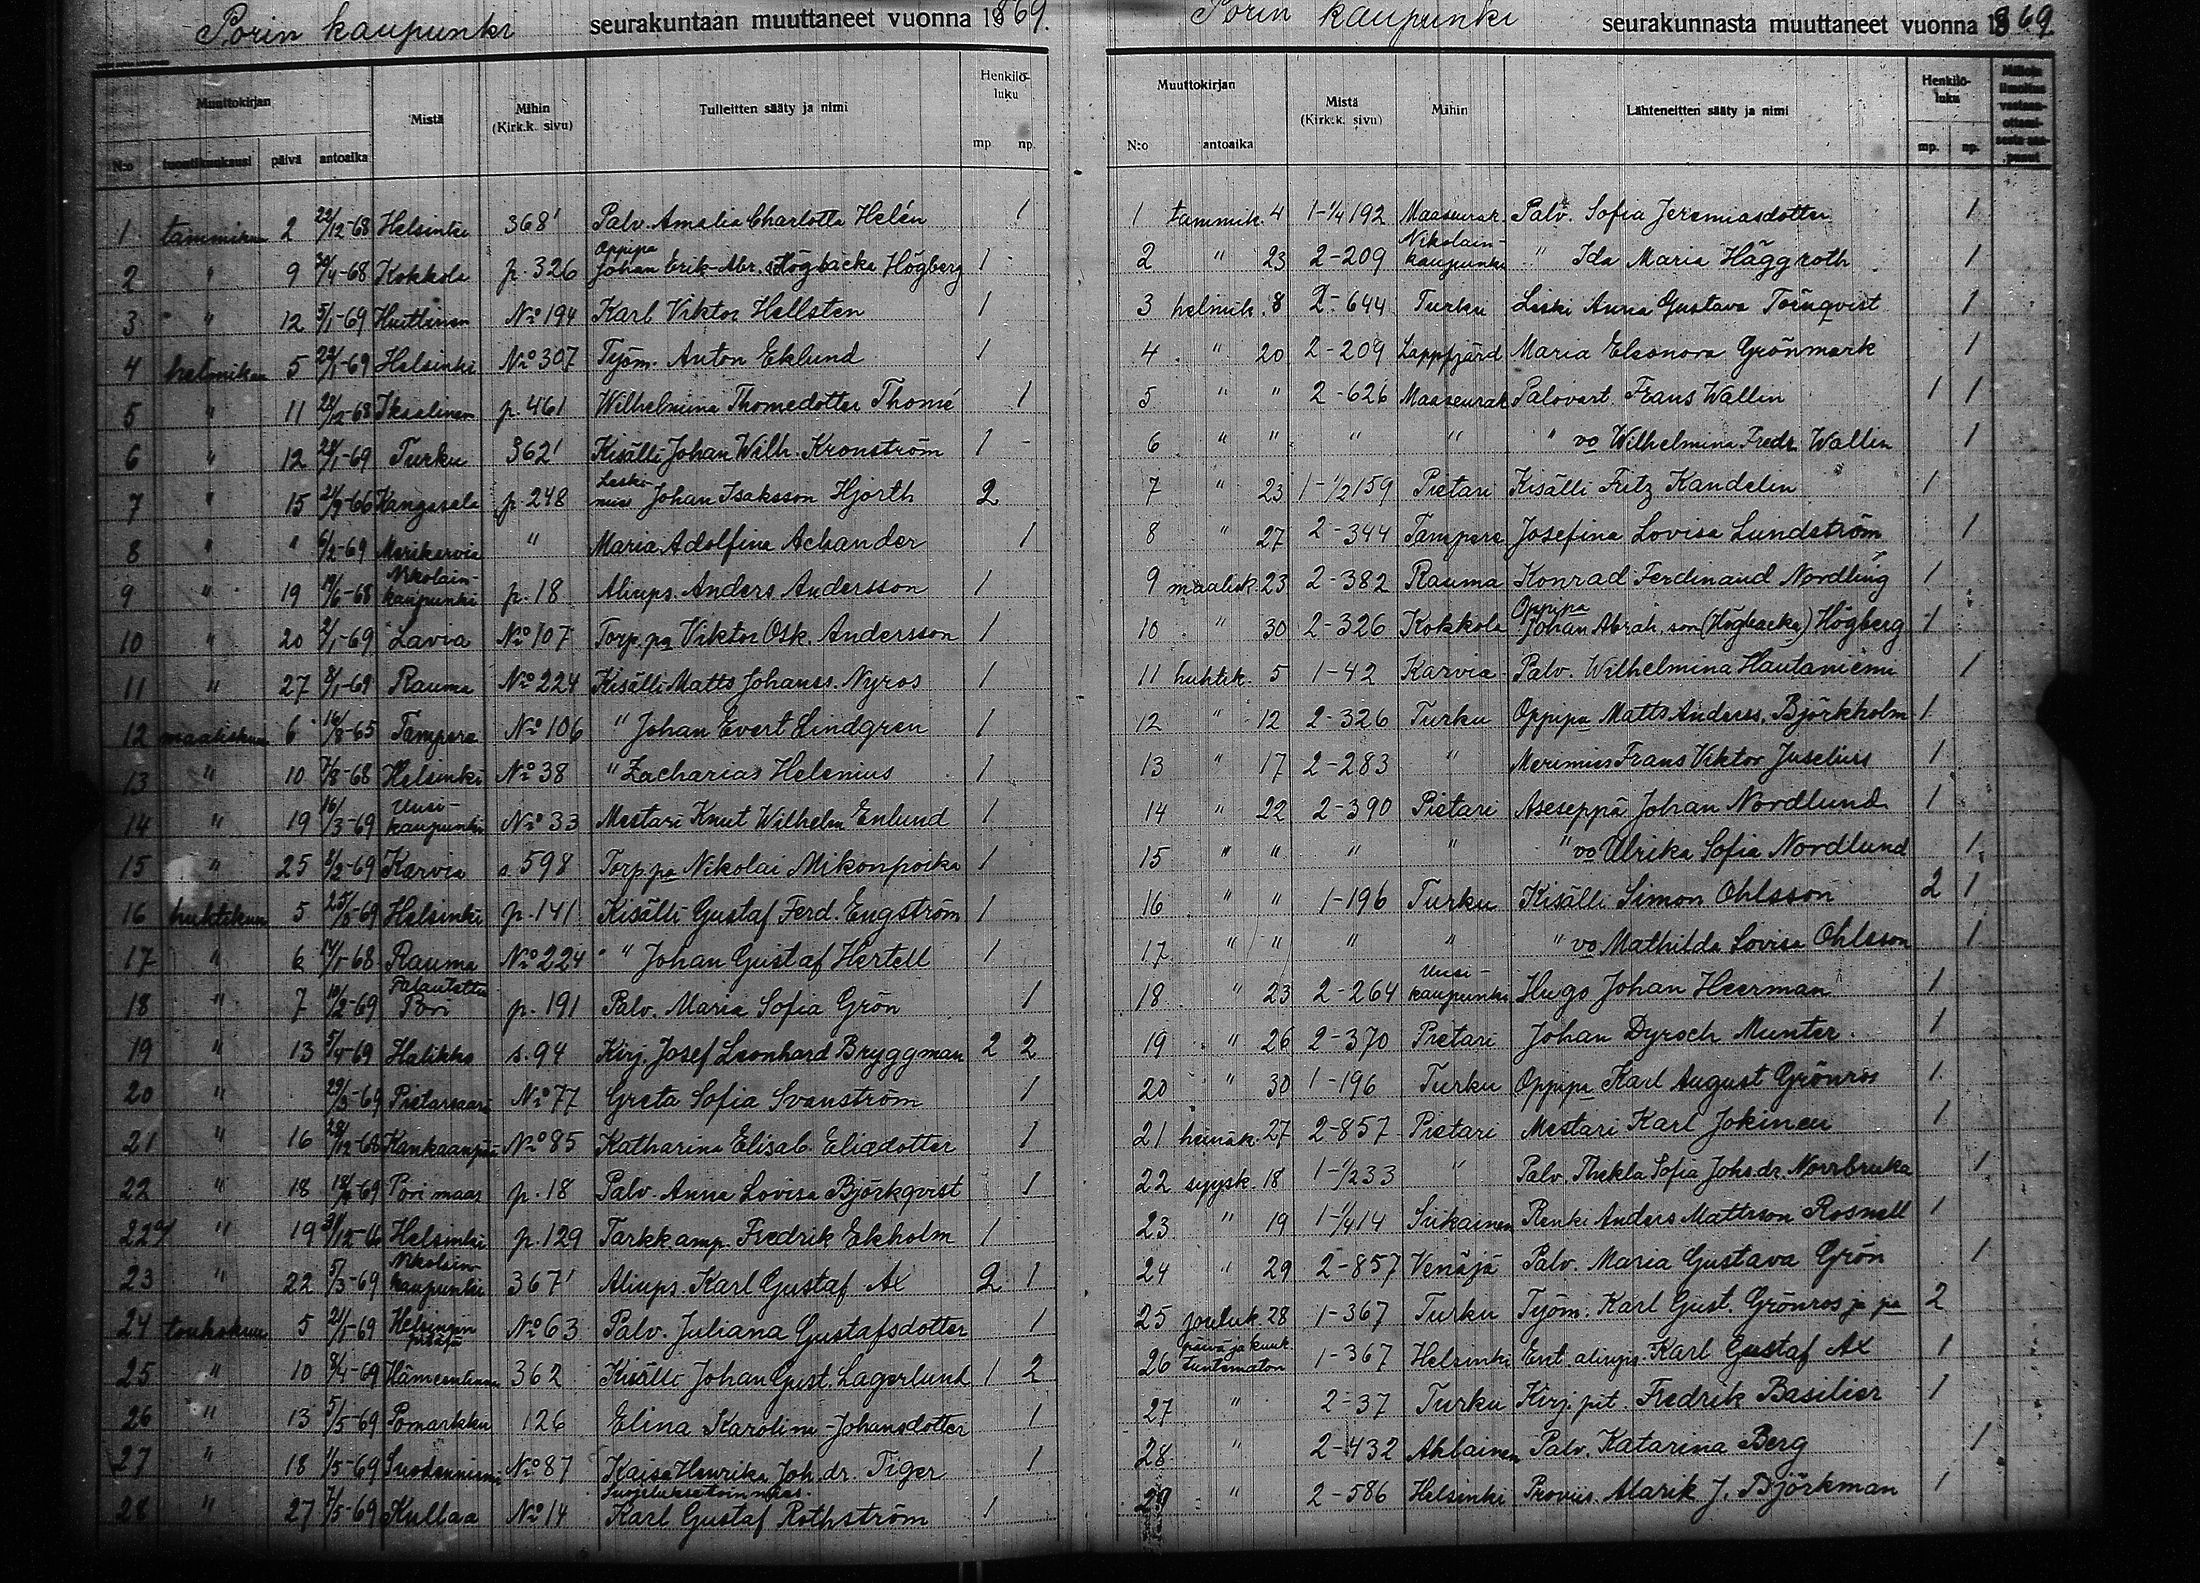 Porin kaupunki seurakuntaan muuttaneet vuonna 1869.
Muuttokirjan Mistä Mihin (Kirk.k. sivu) Tulleitten sääty ja nimi Henkilöluku
N:o tuontikuukausi päivä antoaika mp. np.
1 tammikuu 2 22/12-68 Helsinki 368' Palv. Amalia Charlotta Helén 1
2 " 9 30/4-68 Kokkola p. 326 Oppipa Johan Erik Abr. s Högbacka Högberg 1
3 " 12 5/1-69 Huittinen No 194 Karl Viktor Hellsten 1
4 helmikuu 5 29/1-69 Helsinki No 307 Työm. Anton Eklund 1
5 " 11 28/12-68 Ikaalinen p. 461 Wilhelmina Thomedotter Thomé 1
6 " 12 28/1-69 Turku 362' Kisälli Johan Wilh. Kronström 1 -
7 " 15 24/9-66 Kangasala p. 248 Leskimies Johan Isaksson Hjorth 2
8 " " 6/2-69 Merikarvia " Maria Adolfina Achander 1
9 " 19 19/6-68 Nikolainkaupunki p. 18 Aliups. Anders Andersson 1
10 " 20 2/1-69 Lavia No 107 Torp. pa Viktor Osk. Andersson 1
11 " 27 8/1-69 Rauma No 224 Kisälli Matts Johanss. Nyros 1
12 maaliskuu 6 16/8-65 Tampere No 106 " Johan Evert Lindgren 1
13 " 10 7/8-68 Helsinki No 38 " Zacharias Helenius 1
14 " 19 16/3-69 Uusikaupunki No 33 Mestari Knut Wilhelm Enlund 1
15 " 25 8/2-69 Karvia s. 598 Torp. pa Nikolai Mikonpoika 1
16 huhtikuu 5 25/8-69 Helsinki p. 141 Kisälli Gustaf Ferd. Engström 1
17 " 6 14/1-68 Rauma No 224 " Johan Gustaf Hertell 1
18 " 7 10/2-69 Palautettu Pori p. 191 Palv. Maria Sofia Grön 1
19 " 13 5/4-69 Halikko s. 94 Kirj. Josef Leonhard Bryggman 2 2
20 " 29/3-69 Pietarsaari No 77 Greta Sofia Svanström 1
21 " 16 28/12-68 Kankaanpää No 85 Katharina Elisab. Eliadotter 1
22 " 18 Pori maas p. 18 Palv. Anna Lovisa Björkqvist 1
22a/ " 19 31/12-66 Helsinki p. 129 Tarkk.amp. Fredrik Ekholm 1
23 " 22 5/3-69 Nikolainkaupunki 367' Aliups. Karl Gustaf Ax 2 1
24 toukokuu 5 21/1-69 Helsingin pitäjä No 63 Palv. Juliana Gustafsdotter 1
25 " 10 8/4-69 Hämeenlinna 362 Kisälli Johan Gust. Lagerlund 1 2
26 " 13 5/5-69 Pomarkku 126 Elina Karolina Johansdotter 1
27 " 18 1/5-69 Suodenniemi No 87 Kaisa Henrika Joh. dr. Tiger 1
28 " 27 7/5-69 Kullaa No 14 Karl Gustaf Rothström 1
Porin kaupunki seurakunnasta muuttaneet vuonna 1869
Muuttokirjan Mistä (Kirk.k. sivu) Mihin Lähteneitten sääty ja nimi Henkilöluku
N:o antoaika mp. np.
1 tammik. 4 1-1/4 192 Maaseurak. Palv. Sofia Jeremiasdotter 1
2 " 23 2-209 Nikolainkaupunki " Ida Maria Häggroth 1
3 helmik. 8 2-644 Turku Leski Anna Gustava Törnqvist 1
4 " 20 2-209 Lappfjärd Maria Eleonora Grönmark 1
5 " " 2-626 Maaseurak Palovart. Frans Wallin 1 1
6 " " " " " vo Wilhelmina Fredr. Wallin 1
7 " 23 1-1/2 159 Pietari Kisälli Fritz Kandelin 1
8 " 27 2-344 Tampere Josefina Lovisa Lundström 1
9 maalisk. 23 2-382 Rauma Konrad Ferdinand Nordling 1
10 " 30 2-326 Kokkola Oppipa Johan Abrah. son (Högbacka) Högberg 1
11 huhtik. 5 1-42 Karvia Palv. Wilhelmina Hautaniemi 1
12 " 12 2-326 Turku Oppipa Matts Anderss. Björkholm 1
13 " 17 2-283 " Merimies Frans Viktor Juselius 1
14 " 22 2-390 Pietari Aseseppä Johan Nordlund 1
15 " " " " " vo Ulrika Sofia Nordlund 1
16 " " 1-196 Turku Kisälli Simon Ohlsson 2 1
17 " " " " " vo Mathilda Lovisa Ohlsson 1
18 " 23 2-264 Uusikaupunki Hugo Johan Heerman 1
19 " 26 2-370 Pietari Johan Dyrsch Munter 1
20 " 30 1-196 Turku Oppipa Karl August Grönros 1
21 heinäk. 27 2-857 Pietari Mestari Karl Jokinen 1
22 syysk. 18 1-1/2 33 " Palv. Thekla Sofia Johs.dr. Norrbruka 1
23 " 19 1-1/4 14 Siikainen Renki Anders Mattsson Rosnell 1
24 " 29 2-857 Venäjä Palv. Maria Gustava Grön 1
25 jouluk. 28 1-367 Turku Työm. Karl Gust. Grönros ja pa 2
26 päivä ja kuuk. tuntematon 1-367 Helsinki Ent. aliups. Karl Gustaf Ax 1
27 " 2-37 Turku Kirj. pit. Fredrik Basilier 1
28 " 2-432 Ahlainen Palv. Katarina Berg 1
29 " 2-586 Helsinki Provius. Alarik J. Björkman 1